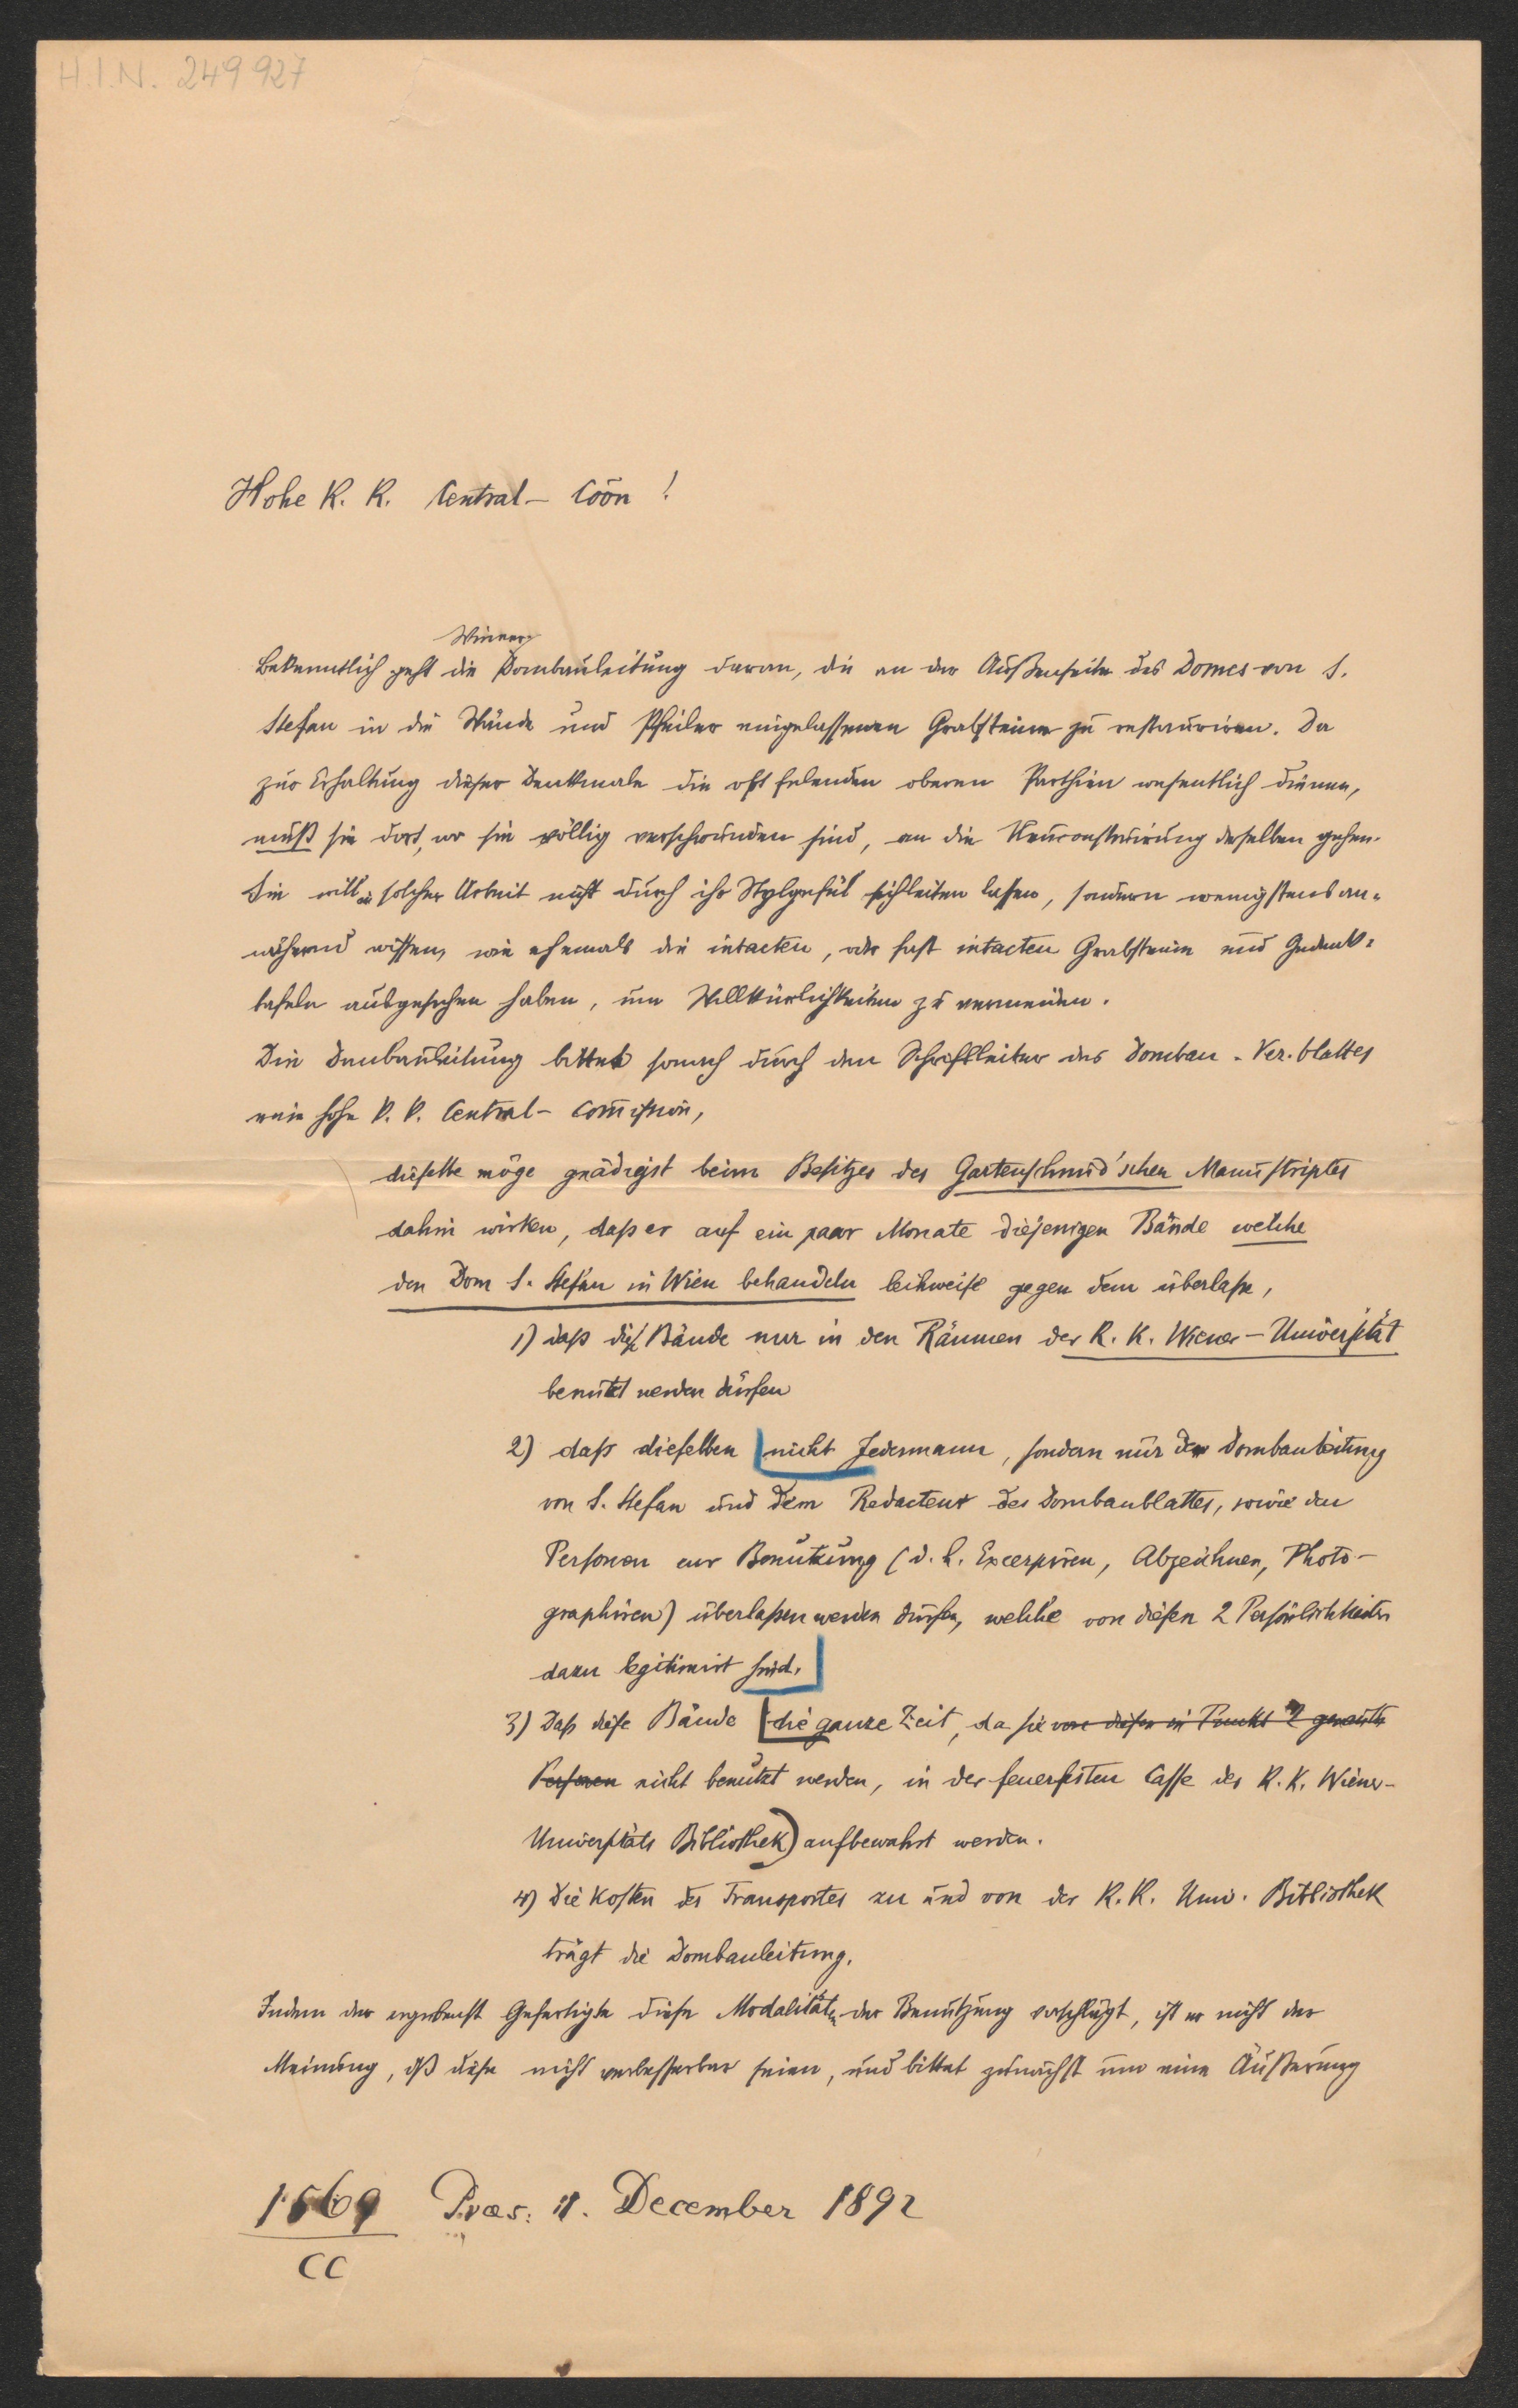 H.I.N. 249 927
Hohe K. K. Central- Coōn!
Wiener
Bekanntlich geht die Dombauleitung daran, die an der Außenseite des Domes von S.
Stefan in die Wände und Pfeiler eingelassenen Grabsteine zu restauriren. Da
zur Erhaltung dieser Denkmale die oft felenden oberen Parthien wesentlich dienen,
muß sie dort, wo sie völlig verschwunden sind, an die Neuconstruirung deselben gehen.
Sie will in solcher Arbeit nicht durch ihr Stylgefül sich leiten lassen, sondern wenigstens an-
nähernd wissen, wie ehemals die intacten, oder fast intacten Grabsteine und Gedenk-
tafeln ausgesehen haben, um Willkürlichkeiten zu vermeiden.
Die Dombauleitung bittet sonach durch den Schriftleiter des Dombau-Ver.blattes
eine hohe K. K. Central- Com̄ission,
dieselbe möge gnädigst beim Besitzer des Gartenschmid'schen Manuskriptes
dahin wirken, daß er auf ein paar Monate diejenigen Bände welche
den Dom S. Stefan in Wien behandeln leihweise gegen dem überlaße,
1) daß diese Bände nur in den Räumen der K. K. Wiener-Universität
benützt werden dürfen
2) daß dieselben nicht Jedermann, sondern nur der Dombauleitung
von S. Stefan und dem Redacteur des Dombaublattes, sowie den
Personen zur Benützung (d. h. Excerpiren, Abzeichnen, Photo-
graphiren) überlaßen werden dürfen, welche von diesen 2 Persönlichkeiten
dazu legitimirt sind.
3) Daß diese Bände die ganze Zeit, da sie von diesen in Punkt 2 genannten
Personen nicht benützt werden, in der feuerfesten Casse der K. K. Wiener-
Universitäts Bibliothek) aufbewahrt werden.
4) Die Kosten des Transportes zu und von der K. K. Univ. Bibliothek
trägt die Dombauleitung.
Indem der ergebenst Gefertigte diese Modalitäten der Benützung vorschlägt, ist er nicht der
Meinung, dß diese nicht verbesserbar seien, und bittet zunächst um eine Äußerung
1569 Præs: 11. December 1892
CC